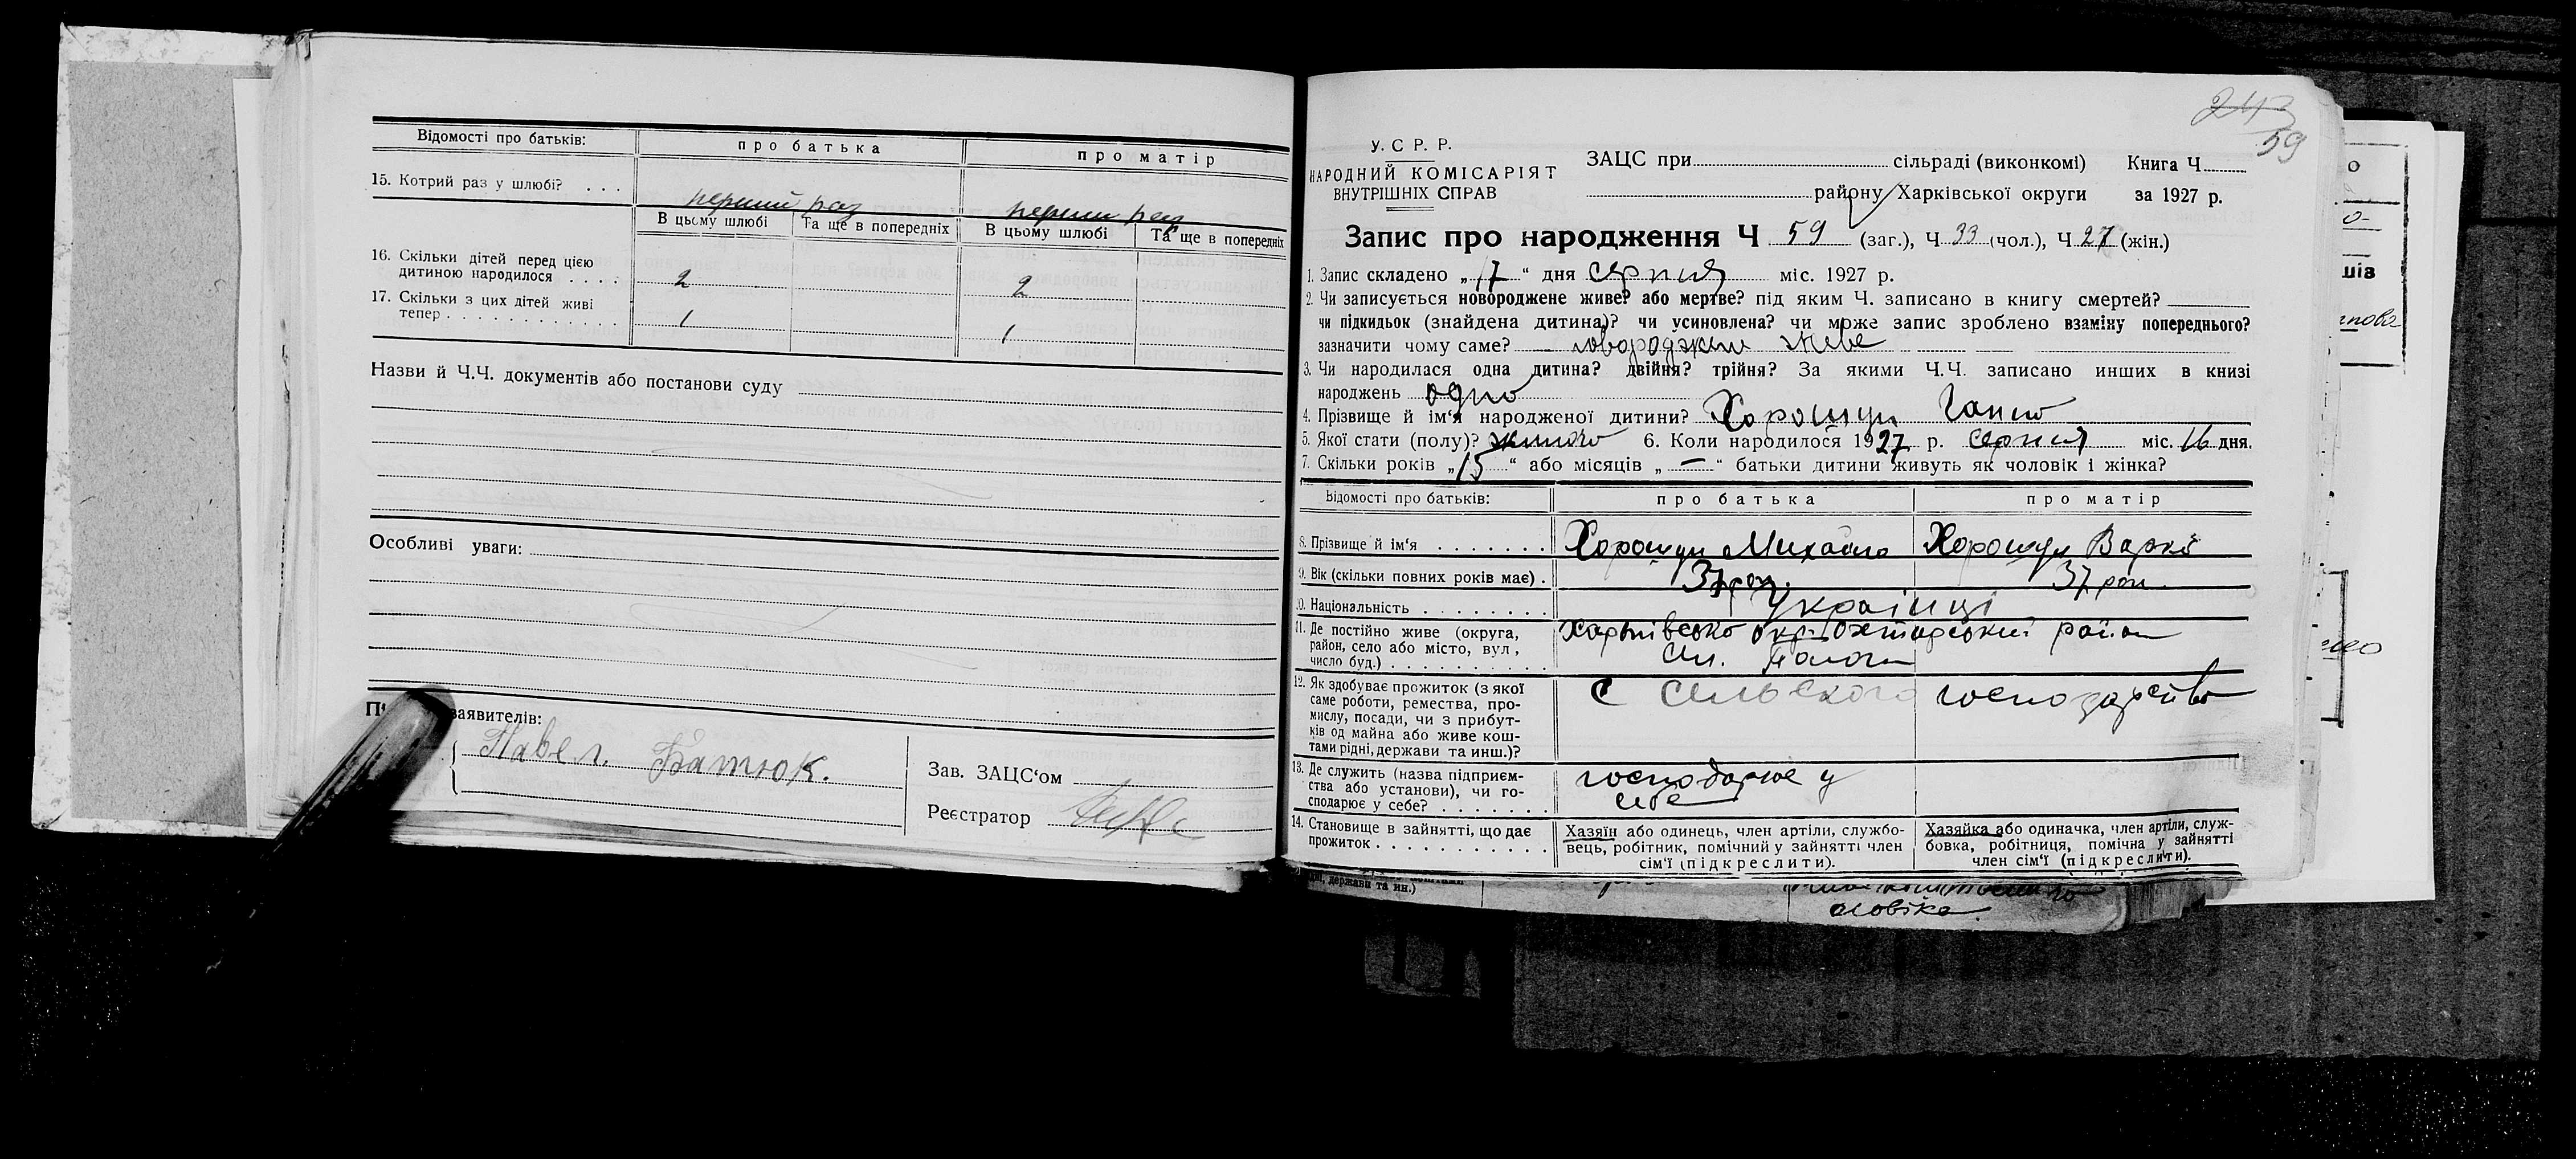 Відомості про батьків:
про батька
про матір
15. Котрий раз у шлюбі? . . .
перший раз
перши раз
В цьому шлюбі
Та ще в попередніх
В цьому шлюбі
Та ще в попередніх
16. Скільки дітей перед цією
дитиною народилося . . . .
2
2
17. Скільки з цих дітей живі
тепер . . . . . . . . . . . .
1
1
Назви й Ч.Ч. документів або постанови суду
Особливі уваги:
заявителів:
Павел. Батюк.
Зав. ЗАЦС‘ом
Реєстратор
243
59
У. С. Р. Р.
НАРОДНИЙ КОМІСАРІЯТ
ВНУТРІШНІХ СПРАВ
ЗАЦС при сільраді (виконкомі) Книга Ч
району Харківської округи за 1927 р.
Запис про народження Ч 59 (заг.), Ч 33 (чол.), Ч 27 (жін.)
1. Запис складено „17“ дня серпня міс. 1927 р.
2. Чи записується новороджене живе? або мертве? під яким Ч. записано в книгу смертей?
чи підкидьок (знайдена дитина)? чи усиновлена? чи може запис зроблено взаміну попереднього?
зазначити чому саме? новороджене живе
3. Чи народилася одна дитина? двійня? трійня? За якими Ч.Ч. записано инших в книзі
народжень одно
4. Прізвище й ім‘я народженої дитини? Хорошун Ганна
5. Якої стати (полу)? жиночо 6. Коли народилося 1927 р. серпня міс. 16 дня.
7. Скільки років „15“ або місяців „—“ батьки дитини живуть як чоловік і жінка?
Відомості про батьків:
про батька
про матір
8. Прізвище й ім‘я . . . . . . .
Хорошун Михайло
Хорошун Варка
9. Вік (скільки повних років має) .
37 рок.
37 рок.
10. Національність . . . . . . . .
Українці
11. Де постійно живе (округа,
район, село або місто, вул.,
число буд.) . . . . . . . . . .
Харьківсько окр. Охтирський район
12. Як здобуває прожиток (з якої
саме роботи, ремества, про-
мислу, посади, чи з прибут-
ків од майна або живе кош-
тами рідні, держави та инш.)?
С сельского господарства
13. Де служить (назва підприєм-
ства або установи), чи го-
сподарює у себе? . . . . . . .
господарює у
себе
14. Становище в зайнятті, що дає
прожиток . . . . . . . . . . .
Хазяїн або одинець, член артіли, службо-
вець, робітник, помічний у зайнятті член
сім‘ї (підкреслити).
Хазяйка або одиначка, член артіли, служ-
бовка, робітниця, помічна у зайнятті
член сім‘ї (підкреслити).
держави та ин.)